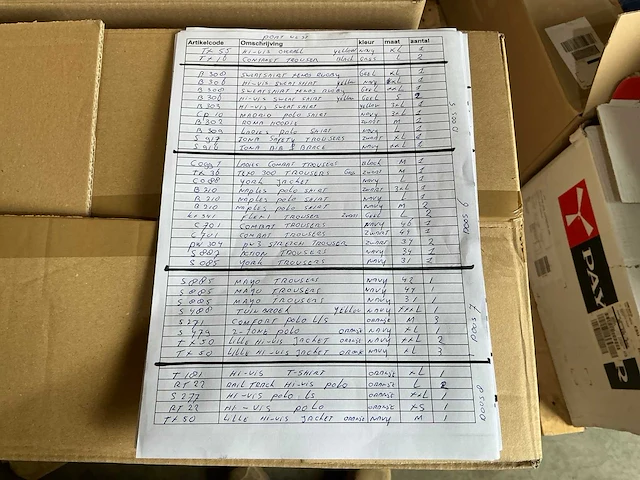 PORT WEST
Artikelcode Omschrijving kleur maat aantal
TX 55 Hi-VIS OVERALL YELLOW NAVY XL 1
TX 16 CONTRAST TROUSER BLACK L 2
B 300 GEEL XL 1
B 306 Hi-VIS SWEAT SHIRT YELLOW NAVY 1
B 300 GEEL 1
B 306 Hi-VIS SWEAT SHIRT YELLOW GEEL S 2
B 303 Hi-VIS SWEAT SHIRT YELLOW 1
MADRID POLO SHIRT NAVY 1
B 302 ROMA HOODIE ZWART M 1
B 209 LADIES POLO SHIRT NAVY L 1
S 917 IONA SAFETY TROUSERS ZWART XL 1
S 916 IONA BIB & BRACE NAVY XL 1
DOOS 5
C 099 LADIES COMBAT TROUSERS BLACK M 1
TX 36 TEXO 300 TROUSERS ZWART M 1
C 088 YORK JACKET NAVY L 1
B 210 NAPLES POLO SHIRT ZWART 3XL 1
B 210 NAPLES POLO SHIRT NAVY L 1
B 210 NAPLES POLO SHIRT NAVY M 2
TROUSER ZWART GEEL L 2
C 701 COMBAT TROUSERS NAVY 46 1
C 701 COMBAT TROUSERS ZWART 44 1
PW 304 PW3 STRETCH TROUSER ZWART 34 2
S 887 ACTION TROUSERS NAVY 34 1
S 085 YORK TROUSERS NAVY 31 1
DOOS 6
S 885 MAYO TROUSERS NAVY 42 1
S 885 MAYO TROUSERS NAVY 1
S 885 MAYO TROUSERS NAVY 31 1
S 488 TUINBROEK YELLOW NAVY XXL 1
S 271 COMFORT POLO L/S ORANJE M 3
S 479 2-TONE POLO ORANJE NAVY XL 1
TX 50 LILLE Hi-VIS JACKET ORANJE NAVY XXL 2
TX 50 LILLE Hi-VIS JACKET ORANJE NAVY XL 3
DOOS 7
T 181 Hi-VIS T-SHIRT ORANJE XL 1
RT 22 RAIL TRACK Hi-VIS POLO ORANJE L 2
S 277 Hi-VIS POLO LS ORANJE XXL 1
RT 22 Hi-VIS POLO ORANJE XS 1
TX 50 LILLE Hi-VIS JACKET ORANJE NAVY M 1
DOOS 8
PAY
R